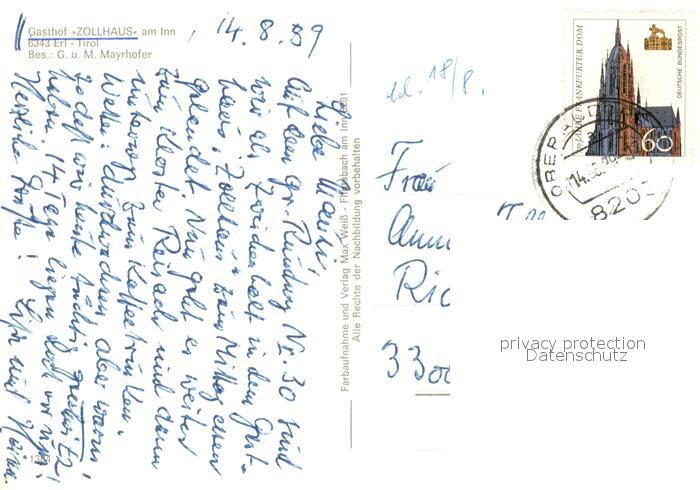 Gasthof »ZOLLHAUS« am Inn
6343 Erl - Tirol
Bes.: G. u. M. Mayrhofer
14.8.89
Liebe Mausi,
Auf dem gr. Rundweg Nr. 30 sind
wir als Zwischenhalt in dem Gast-
haus „Zollhaus" zum Mittagessen
gelandet. Nun geht es weiter
zum Kloster Reisach und dann
unterwegs zum Kaffeetrinken.
Wetter: durchwachsen aber warm
haben. 14 Tage liegen noch vor uns!
Herzliche Grüße!
und
1384
Farbaufnahme und Verlag Max Weiß - Flintsbach am Inn
Alle Rechte der Nachbildung vorbehalten
erl. 18/8.
Frau
Ric
330
FRANKFURTER DOM
DEUTSCHE BUNDESPOST
60
OBERAUD
14.
8203
privacy protection
Datenschutz